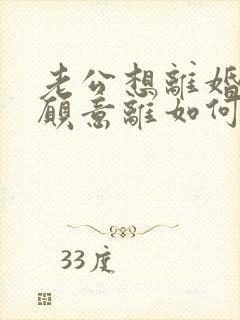 老公想離婚
願意離如何
33度